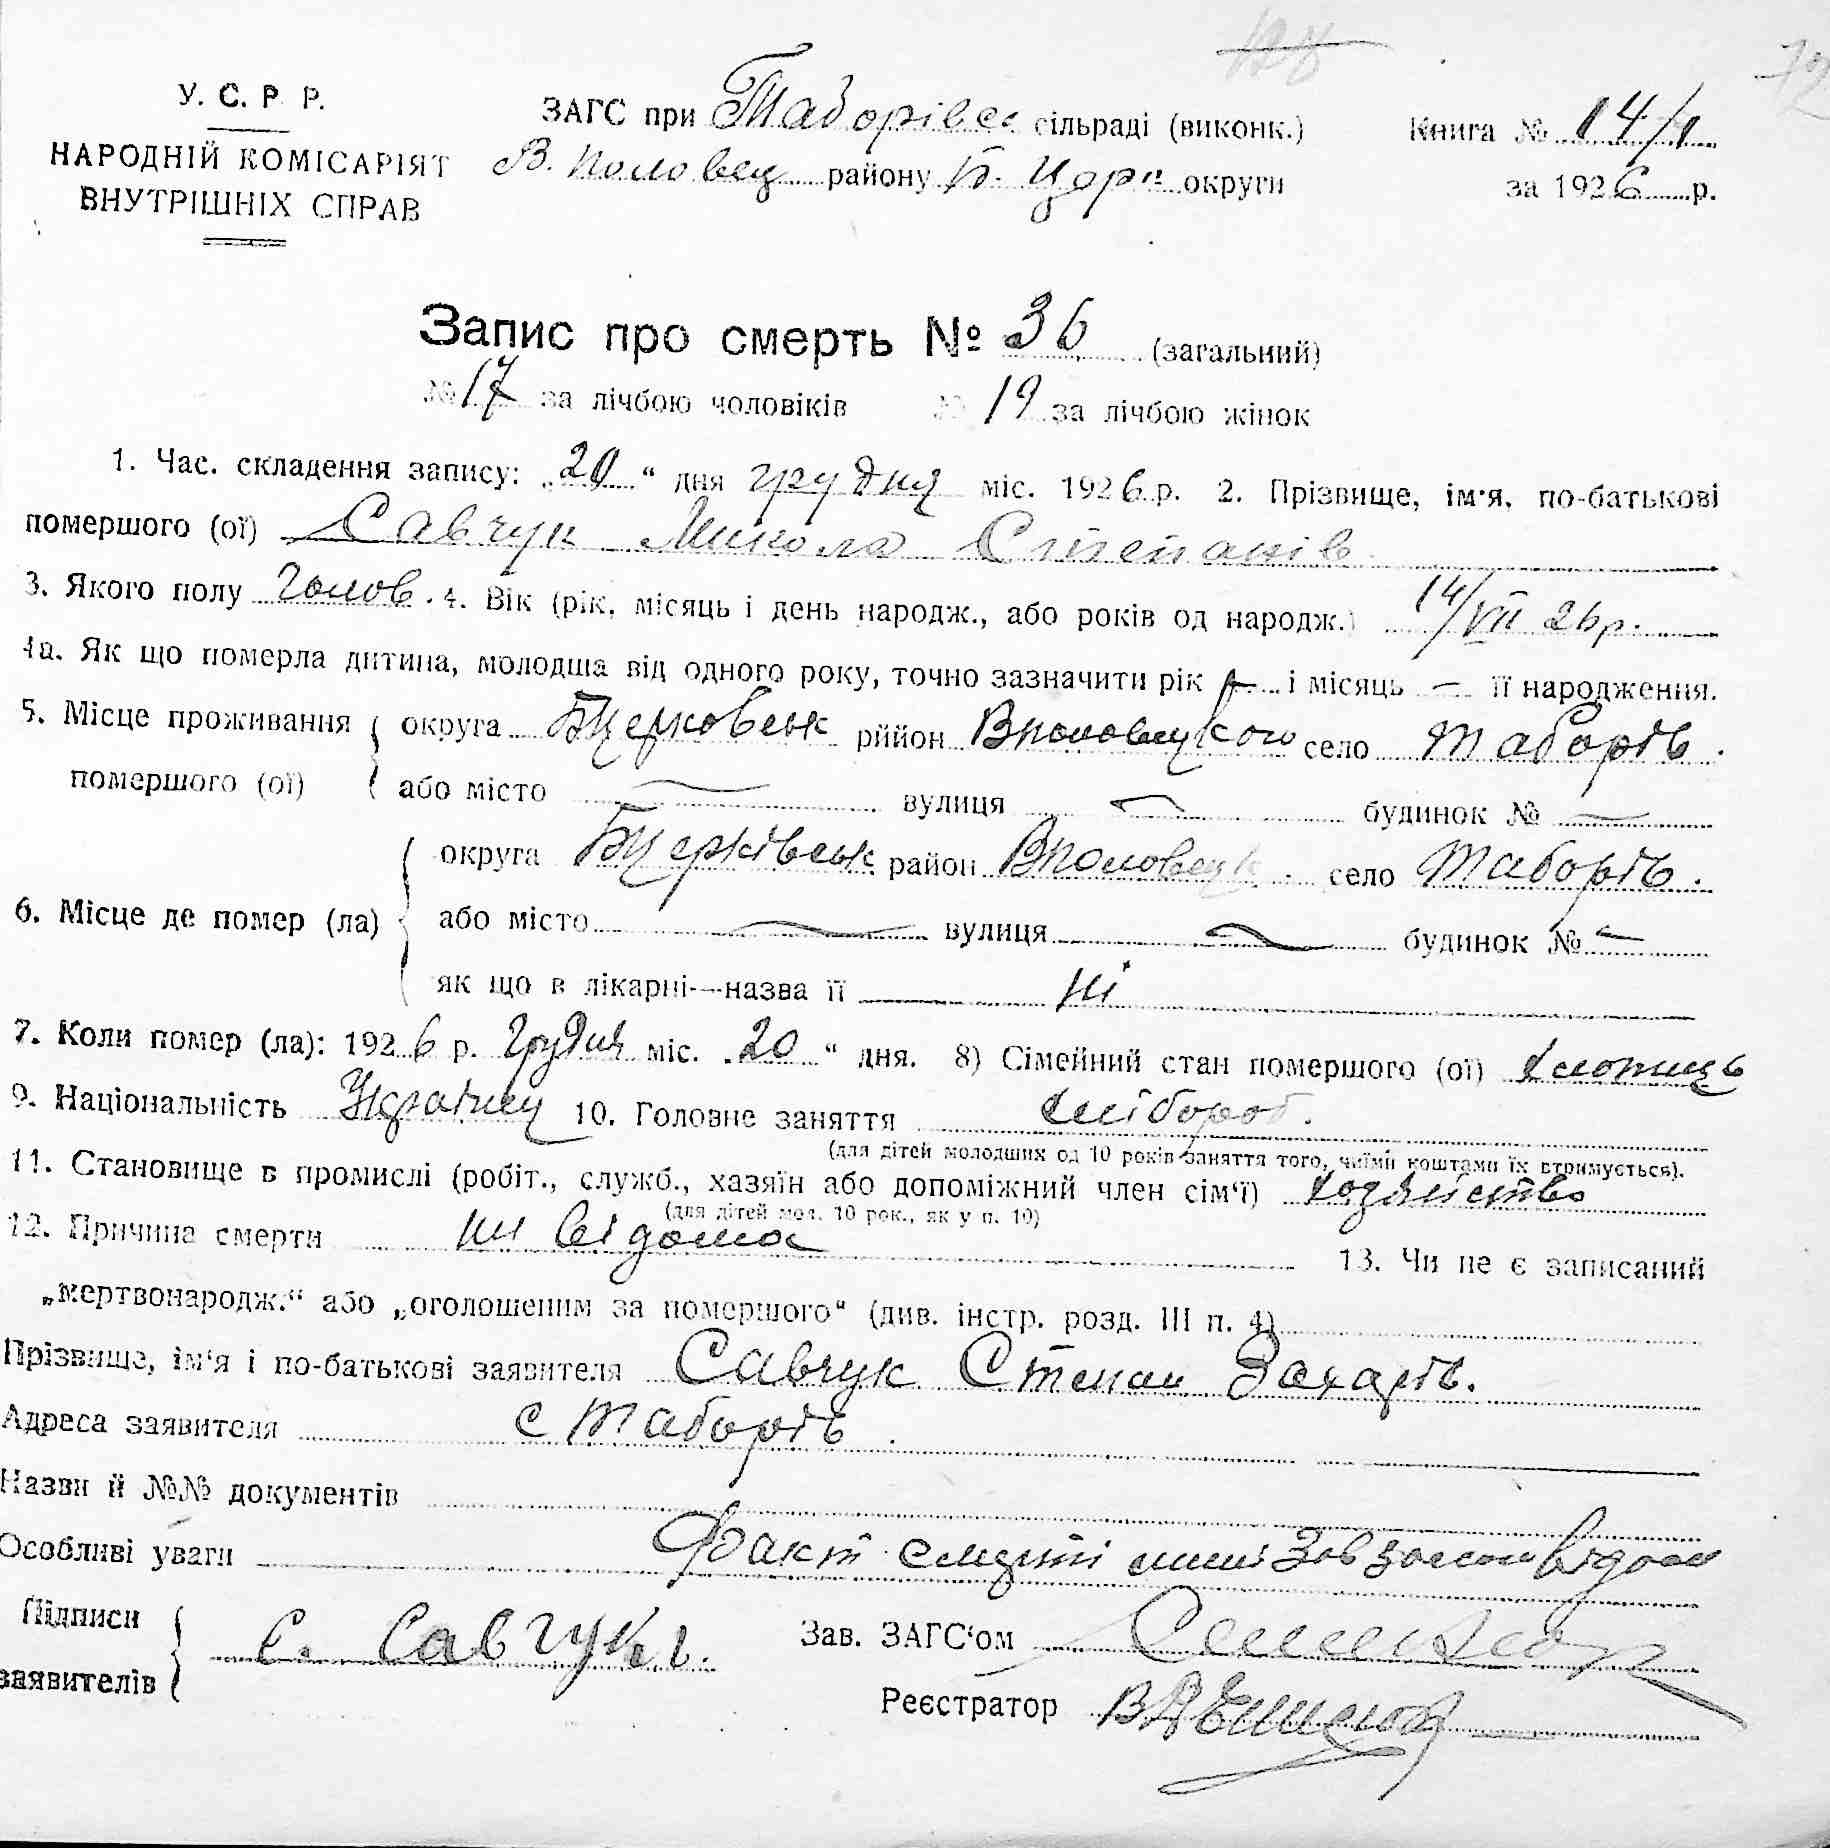 У. С. Р. Р.
НАРОДНІЙ КОМІСАРІЯТ
ВНУТРІШНІХ СПРАВ
ЗАГС при Таборівс сільраді (виконк.)
В. Половец району Б. Церк округи
Книга № 14/1
за 1926 р.
Запис про смерть № 36 (загальний)
№ 17 за лічбою чоловіків № 19 за лічбою жінок
1. Час. складення запису: „20“ дня грудня міс. 1926 р. 2. Прізвище, ім'я, по-батькові
помершого (ої) Савчук Микола Степанів
3. Якого полу чолов. 4. Вік (рік, місяць і день народж., або років од народж.) 14/VII 26 р.
4а. Як що померла дитина, молодша від одного року, точно зазначити рік — і місяць — її народження.
5. Місце проживання помершого (ої) округа Бцерковськ рййон Вполовецького село Таборів.
або місто — вулиця — будинок № —
6. Місце де помер (ла) округа Бцерківськ район Вполовецьк. село Таборів.
або місто — вулиця — будинок № —
як що в лікарні—назва її ні
7. Коли помер (ла): 1926 р. Грудня міс. „20“ дня. 8) Сімейний стан помершого (ої) хлопиць
9. Національність Українец 10. Головне заняття хлібороб.
(для дітей молодших од 10 років заняття того, чиїми коштами їх втримується).
11. Становище в промислі (робіт., служб., хазяїн або допоміжний член сім'ї) хозяйство
(для дітей мол. 10 рок., як у п. 10)
12. Причина смерти ни відома 13. Чи не є записаний
„мертвонародж.“ або „оголошеним за помершого“ (див. інстр. розд. III п. 4)
Прізвище, ім'я і по-батькові заявителя Савчук Степан Захарів.
Адреса заявителя с Таборів.
Назви й №№ документів
Особливі уваги Факт смерті мині Зав загсом відом
Підписи заявителів С. Савчук
Зав. ЗАГС'ом
Реєстратор